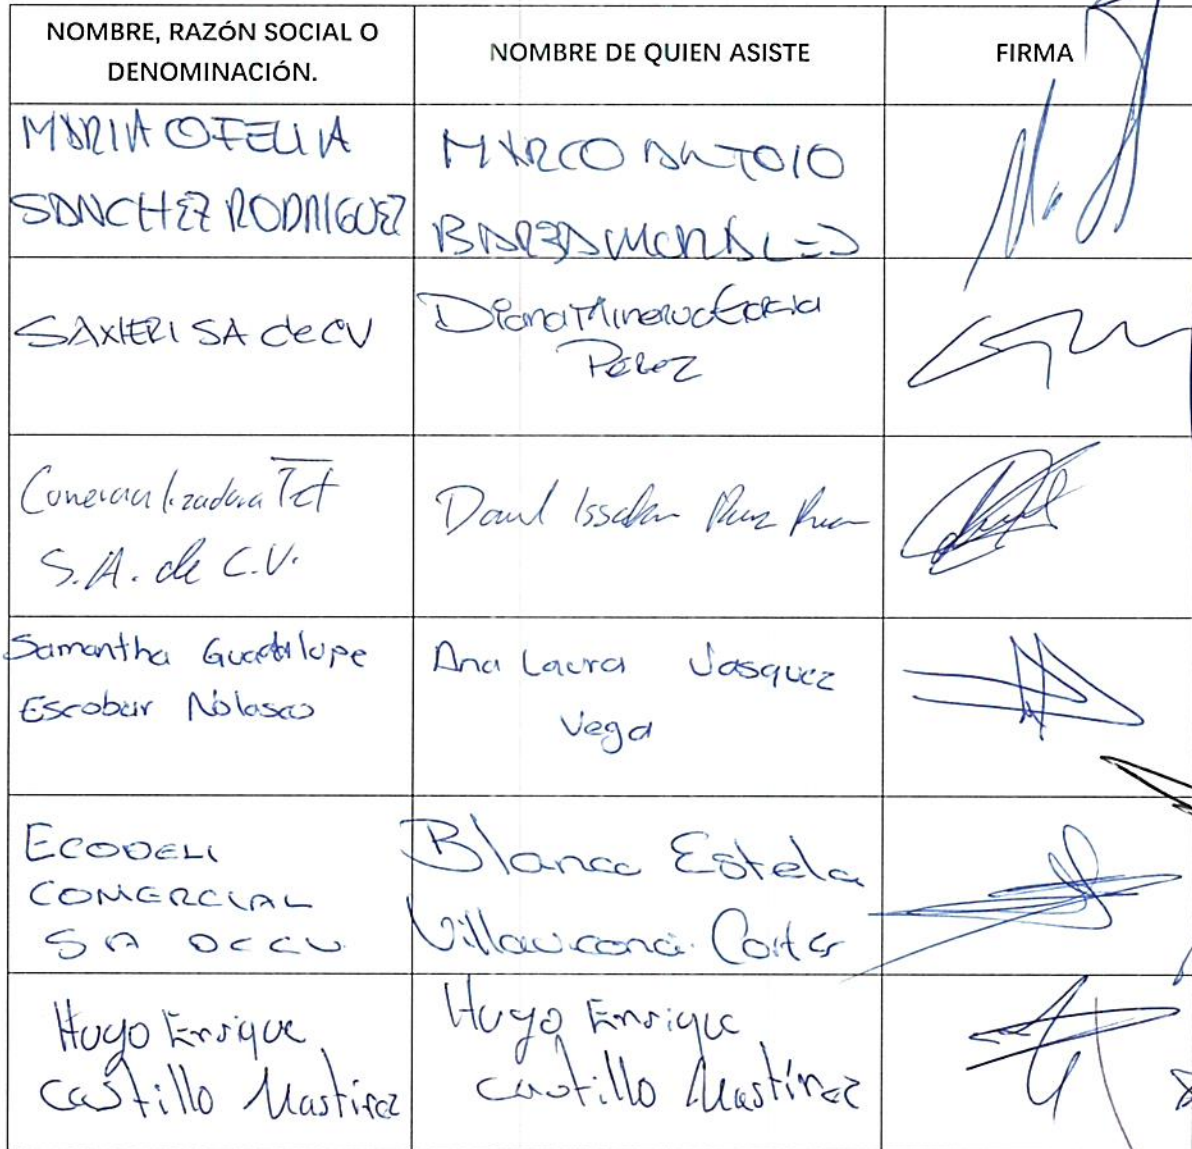 NOMBRE, RAZÓN SOCIAL O
DENOMINACIÓN.
NOMBRE DE QUIEN ASISTE
FIRMA
MARIA OFELIA
SANCHEZ RODRIGUEZ
MARCO ANTOIO
MORALES
SAXIERI SA de CV
Diana Minerva Garcia
Pérez
Comercializadora Tet
S.A. de C.V.
Samantha Guadalupe
Escobar Nolasco
Ana Laura Vasquez
Vega
ECODELI
COMERCIAL
SA DE CV
Blanca Estela
Villavicencio Cortes
Hugo Enrique
Castillo Martinez
Hugo Enrique
Castillo Martínez